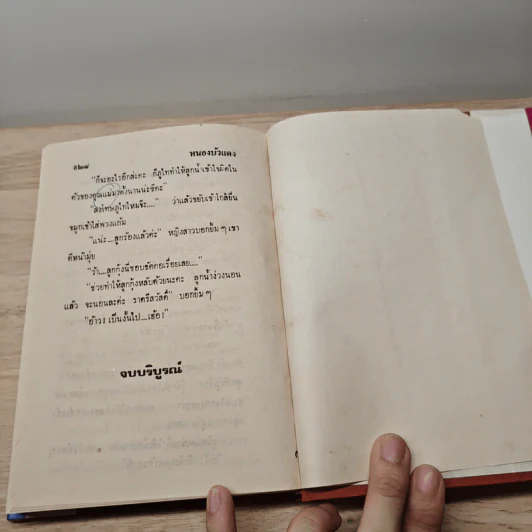 ๕๒๘ หนองบัวแดง
"ก็จะอะไรอีกล่ะคะ ก็ภูไททำให้ลูกน้ำเข้าใจผิดใน
ตัวของคุณแม่มาตั้งนานน่ะซีคะ"
"ลงโทษภูไทไหมจ๊ะ...." ว่าแล้วขยับเข้าใกล้ยื่น
จมูกเข้าใส่พวงแก้ม
"แน่ะ...ลูกร้องแล้วค่ะ" หญิงสาวบอกยิ้ม ๆ เขา
ตีหน้ามุ่ย
"ว้า....ลูกกุ้งนี่ชอบขัดคอเรื่อยเลย...."
"ช่วยทำให้ลูกกุ้งหลับด้วยนะคะ ลูกน้ำง่วงนอน
แล้ว จะนอนละค่ะ ราตรีสวัสดิ์" บอกยิ้ม ๆ
"อ้าว! เป็นงั้นไป...เฮ้อ!"
จบบริบูรณ์